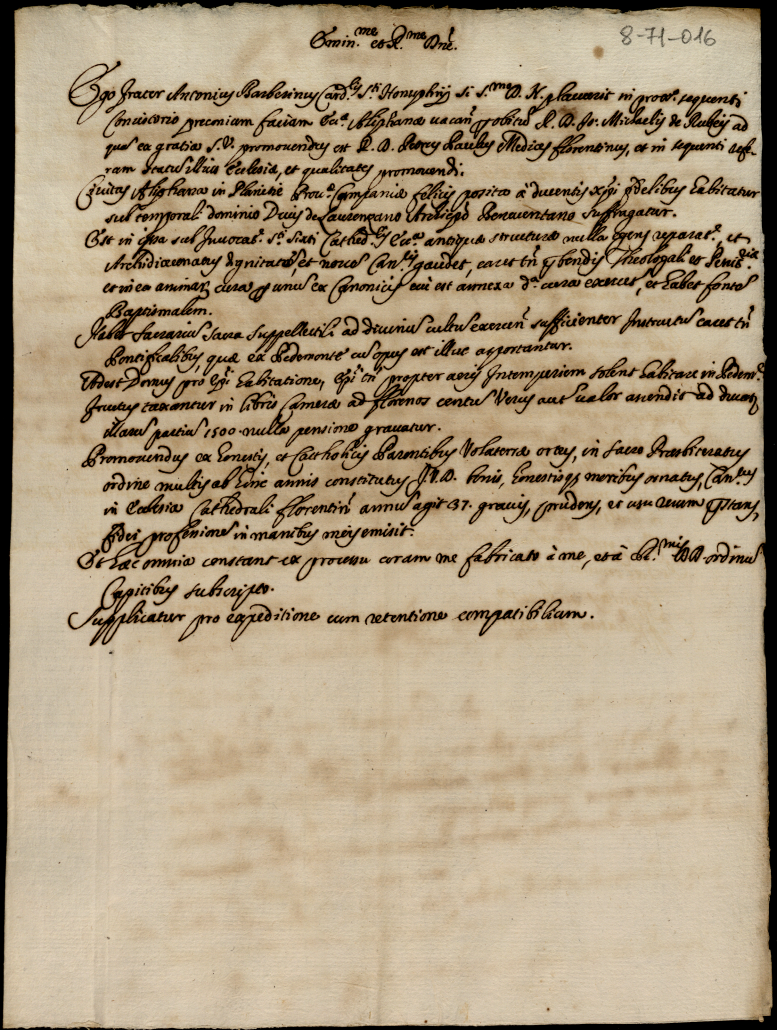 8-71-016
Emin.me et R.me Dne.
Ego frater Antonius Barberinus Card.lis S.ti Honuphrij si S.mo D. N. placuerit in prox.o sequenti
Consistorio preconium faciam Ecc.ae Aliphanae vacan. obitum R. D. Jo. Michaelis de Rubeis ad
quam ex gratia S. V. promovendus est R. D. Petrus Paulus Medices florentinus, et in sequenti refe-
ram statum illius Ecclesiae, et qualitates promovendi.
Civitas Aliphana in Planitie Prov.ae Campaniae felicis posita à ducentis xpi fidelibus habitatur
sub temporali dominio Ducis de Laurenzano Archiepo Beneventano suffragatur.
Est in ipsa sub Invocat.e S.ti Sixti Cathed.lis Ecc.a antiqua structura nulla egens reparat.e, et
Archidiaconatus dignitate et novem Can.tis gaudet, caret tn pbendis Theologali et Penit.ria
et in ea animar. cura p unum ex Canonicis cui est annexa d.a cura exercet, et habet fontem
Baptismalem.
Habet Sacrarium sacra suppellectili ad divinum cultum exercen. sufficienter Instructum caret tn
Pontificalibus, quae ex Pedemonte cum opus est illuc apportantur.
Adest Domus pro Epi habitatione, Epi tn propter aeris Intemperiem solent habitare in Pedem.te
fructus taxantur in libris Camerae ad florenos centum Verus aut. valor ascendit ad ducat.
illarum partium 1500. nulla pensione gravatur.
Promovendus ex honestis, et Catholicis Parentibus Volaterrae ortus, in sacro Praesbiteratus
ordine multis ab hinc annis constitutus J.V.D. bonis, honestisq. moribus ornatus, Can.cus
in Ecclesia Cathedrali florentin. annum agit 37. gravis, prudens, et usu rerum pstans,
fidei professionem in manibus meis emisit.
Et haec omnia constant ex processu coram me fabricato à me, et à R.mis DD. ordinum
Capitibus subscripto.
Supplicatur pro expeditione cum retentione compatibilium.